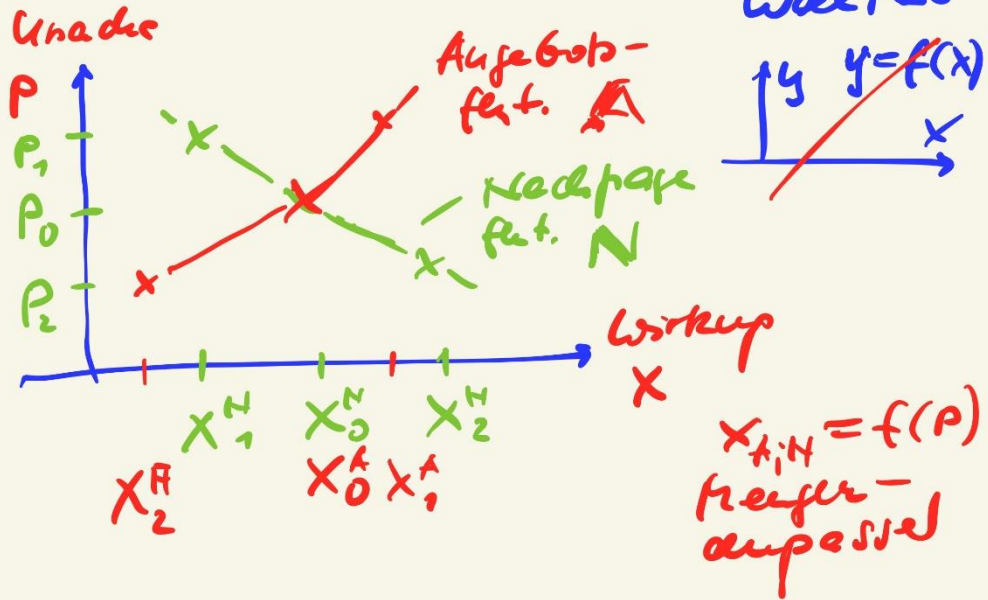 Ursache
P
P₁
P₀
P₂
Angebots-
fkt. A
Nachfrage
fkt. N
y
y=f(x)
x
Wirkung
X
X₁ᴺ X₀ᴺ X₂ᴺ
X₂ᴬ X₀ᴬ X₁ᴬ
X_A,N = f(P)
Mengen-
anpasser